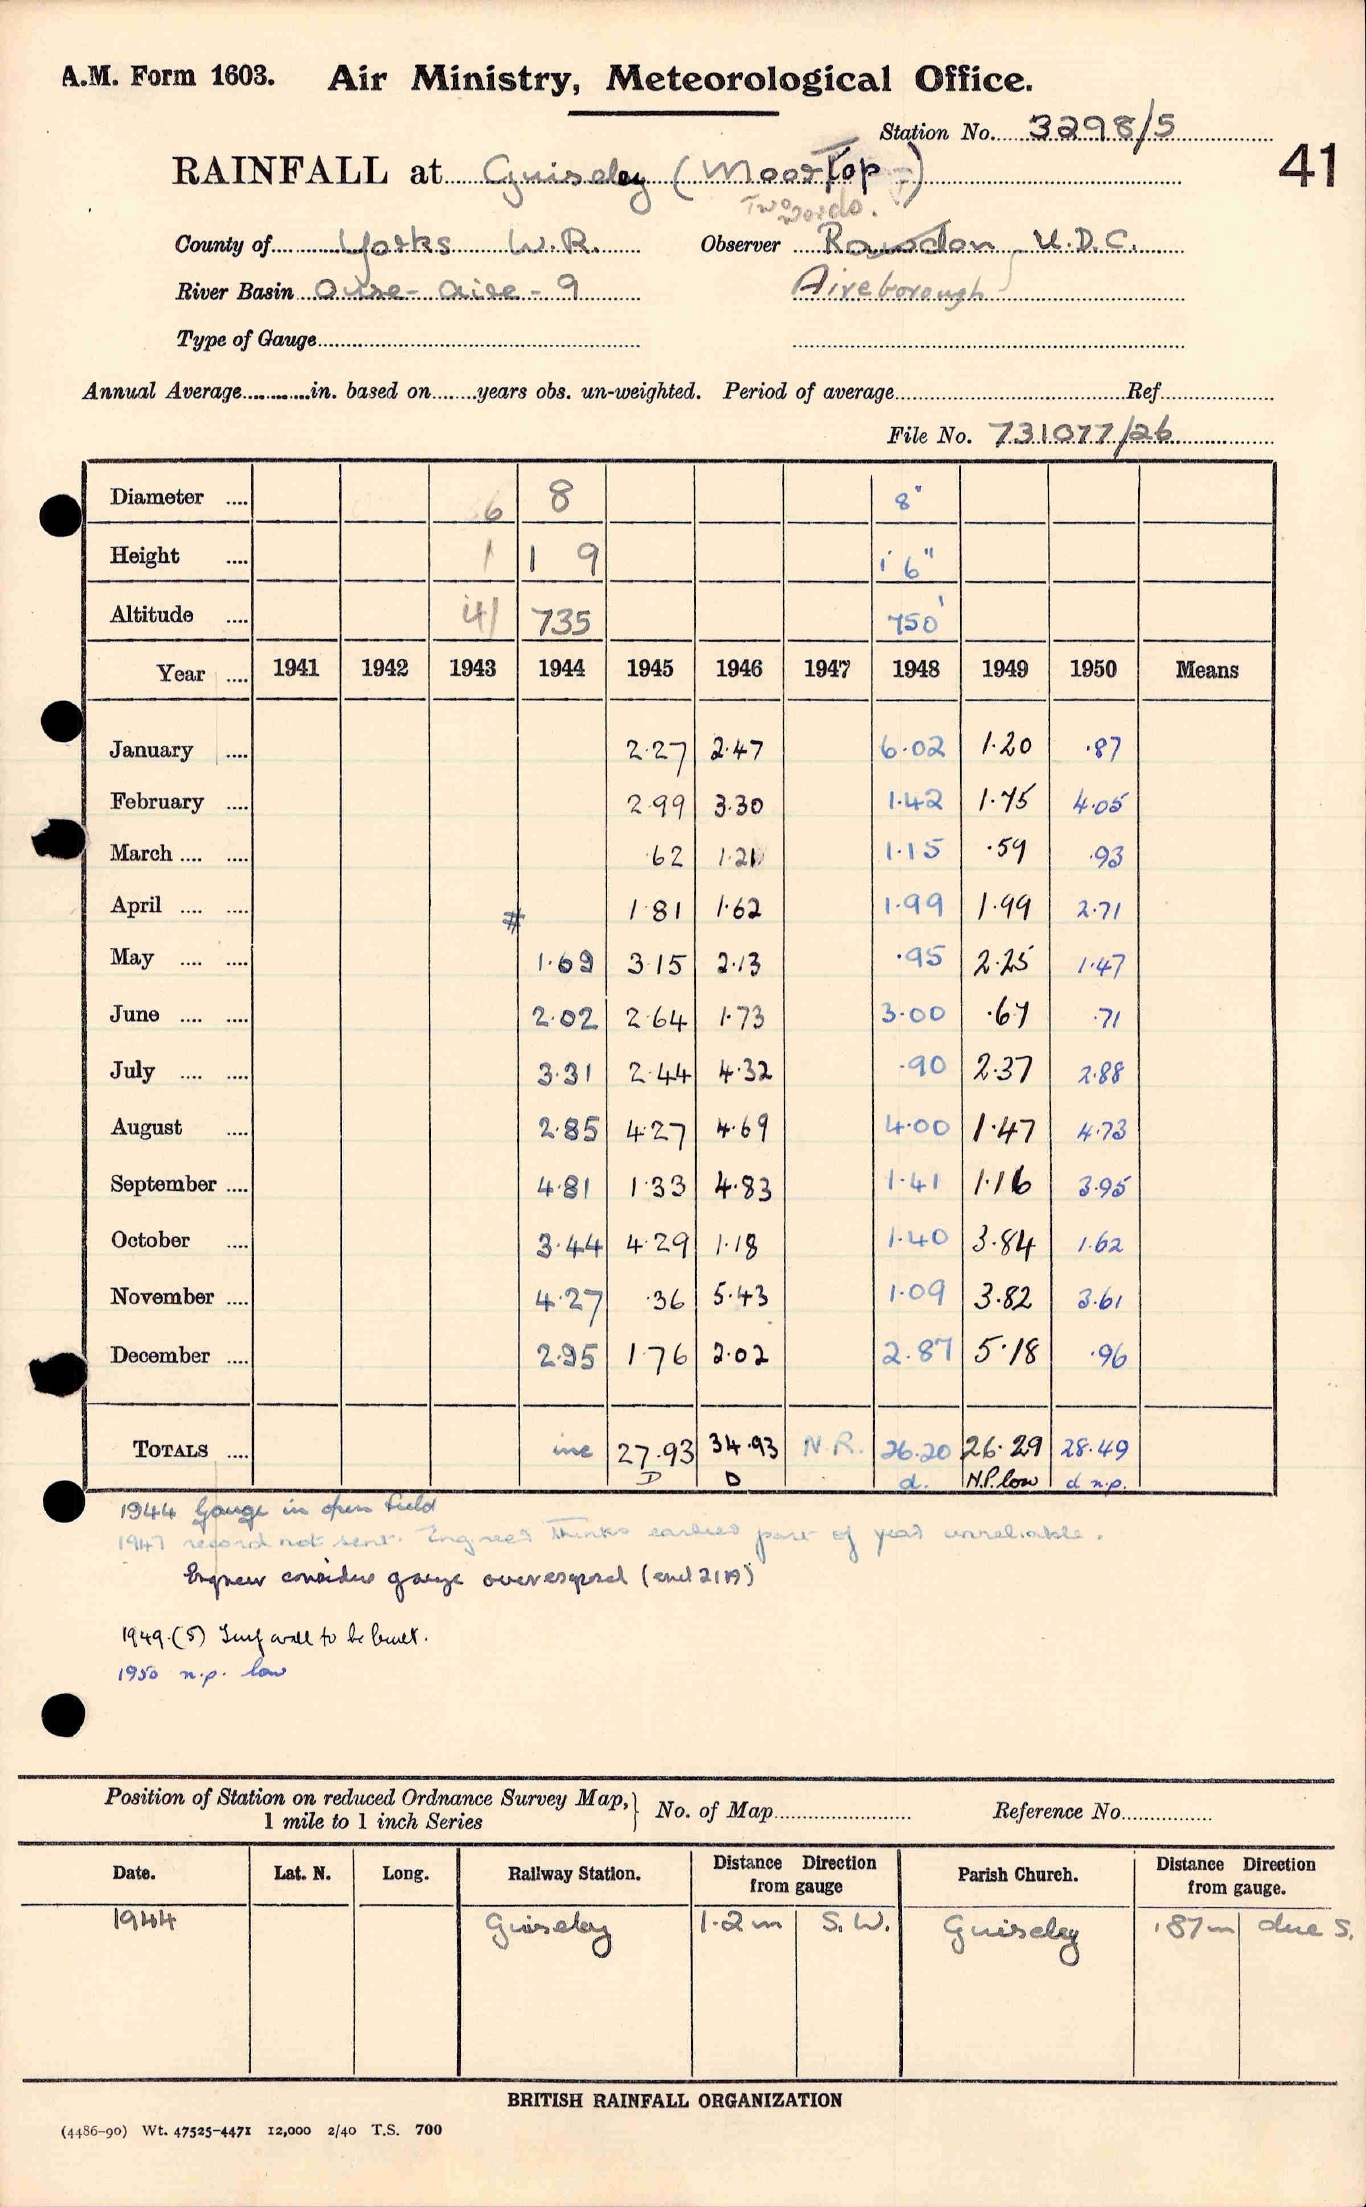 A.M. Form 1603. Air Ministry, Meteorological Office.
Station No. 3298/5
41
RAINFALL at Guiseley (Moor Top)
Two words.
County of Yorks W.R. Observer Rawdon U.D.C.
River Basin Ouse - Aire - 9 Aireborough
Type of Gauge
Annual Average in. based on years obs. un-weighted. Period of average Ref.
File No. 731077/26
Diameter .... 6 8 8"
Height .... 1 1 9 1' 6"
Altitude .... 41 735 750'
Year .... 1941 1942 1943 1944 1945 1946 1947 1948 1949 1950 Means
January .... 2.27 2.47 6.02 1.20 .87
February .... 2.99 3.30 1.42 1.75 4.05
March .... .... .62 1.21 1.15 .59 .93
April .... .... # 1.81 1.62 1.99 1.99 2.71
May .... .... 1.69 3.15 2.13 .95 2.25 1.47
June .... .... 2.02 2.64 1.73 3.00 .67 .71
July .... .... 3.31 2.44 4.32 .90 2.37 2.88
August .... 2.85 4.27 4.69 4.00 1.47 4.73
September .... 4.81 1.33 4.83 1.41 1.16 3.95
October .... 3.44 4.29 1.18 1.40 3.84 1.62
November .... 4.27 .36 5.43 1.09 3.82 3.61
December .... 2.95 1.76 2.02 2.87 5.18 .96
TOTALS .... inc 27.93 34.93 N.R. 26.20 26.29 28.49
D D d. N.P. low d n.p.
1944 Gauge in open field
1947 record not sent. Engineer thinks earlier part of year unreliable.
Engineer considers gauge overexposed
1949.(5) Turf wall to be built.
1950 n.p. low
Position of Station on reduced Ordnance Survey Map, 1 mile to 1 inch Series } No. of Map Reference No.
Date. Lat. N. Long. Railway Station. Distance Direction from gauge Parish Church. Distance Direction from gauge.
1944 Guiseley 1.2 m S.W. Guiseley .87 m due S.
BRITISH RAINFALL ORGANIZATION
(4486-90) Wt. 47525-4471 12,000 2/40 T.S. 700